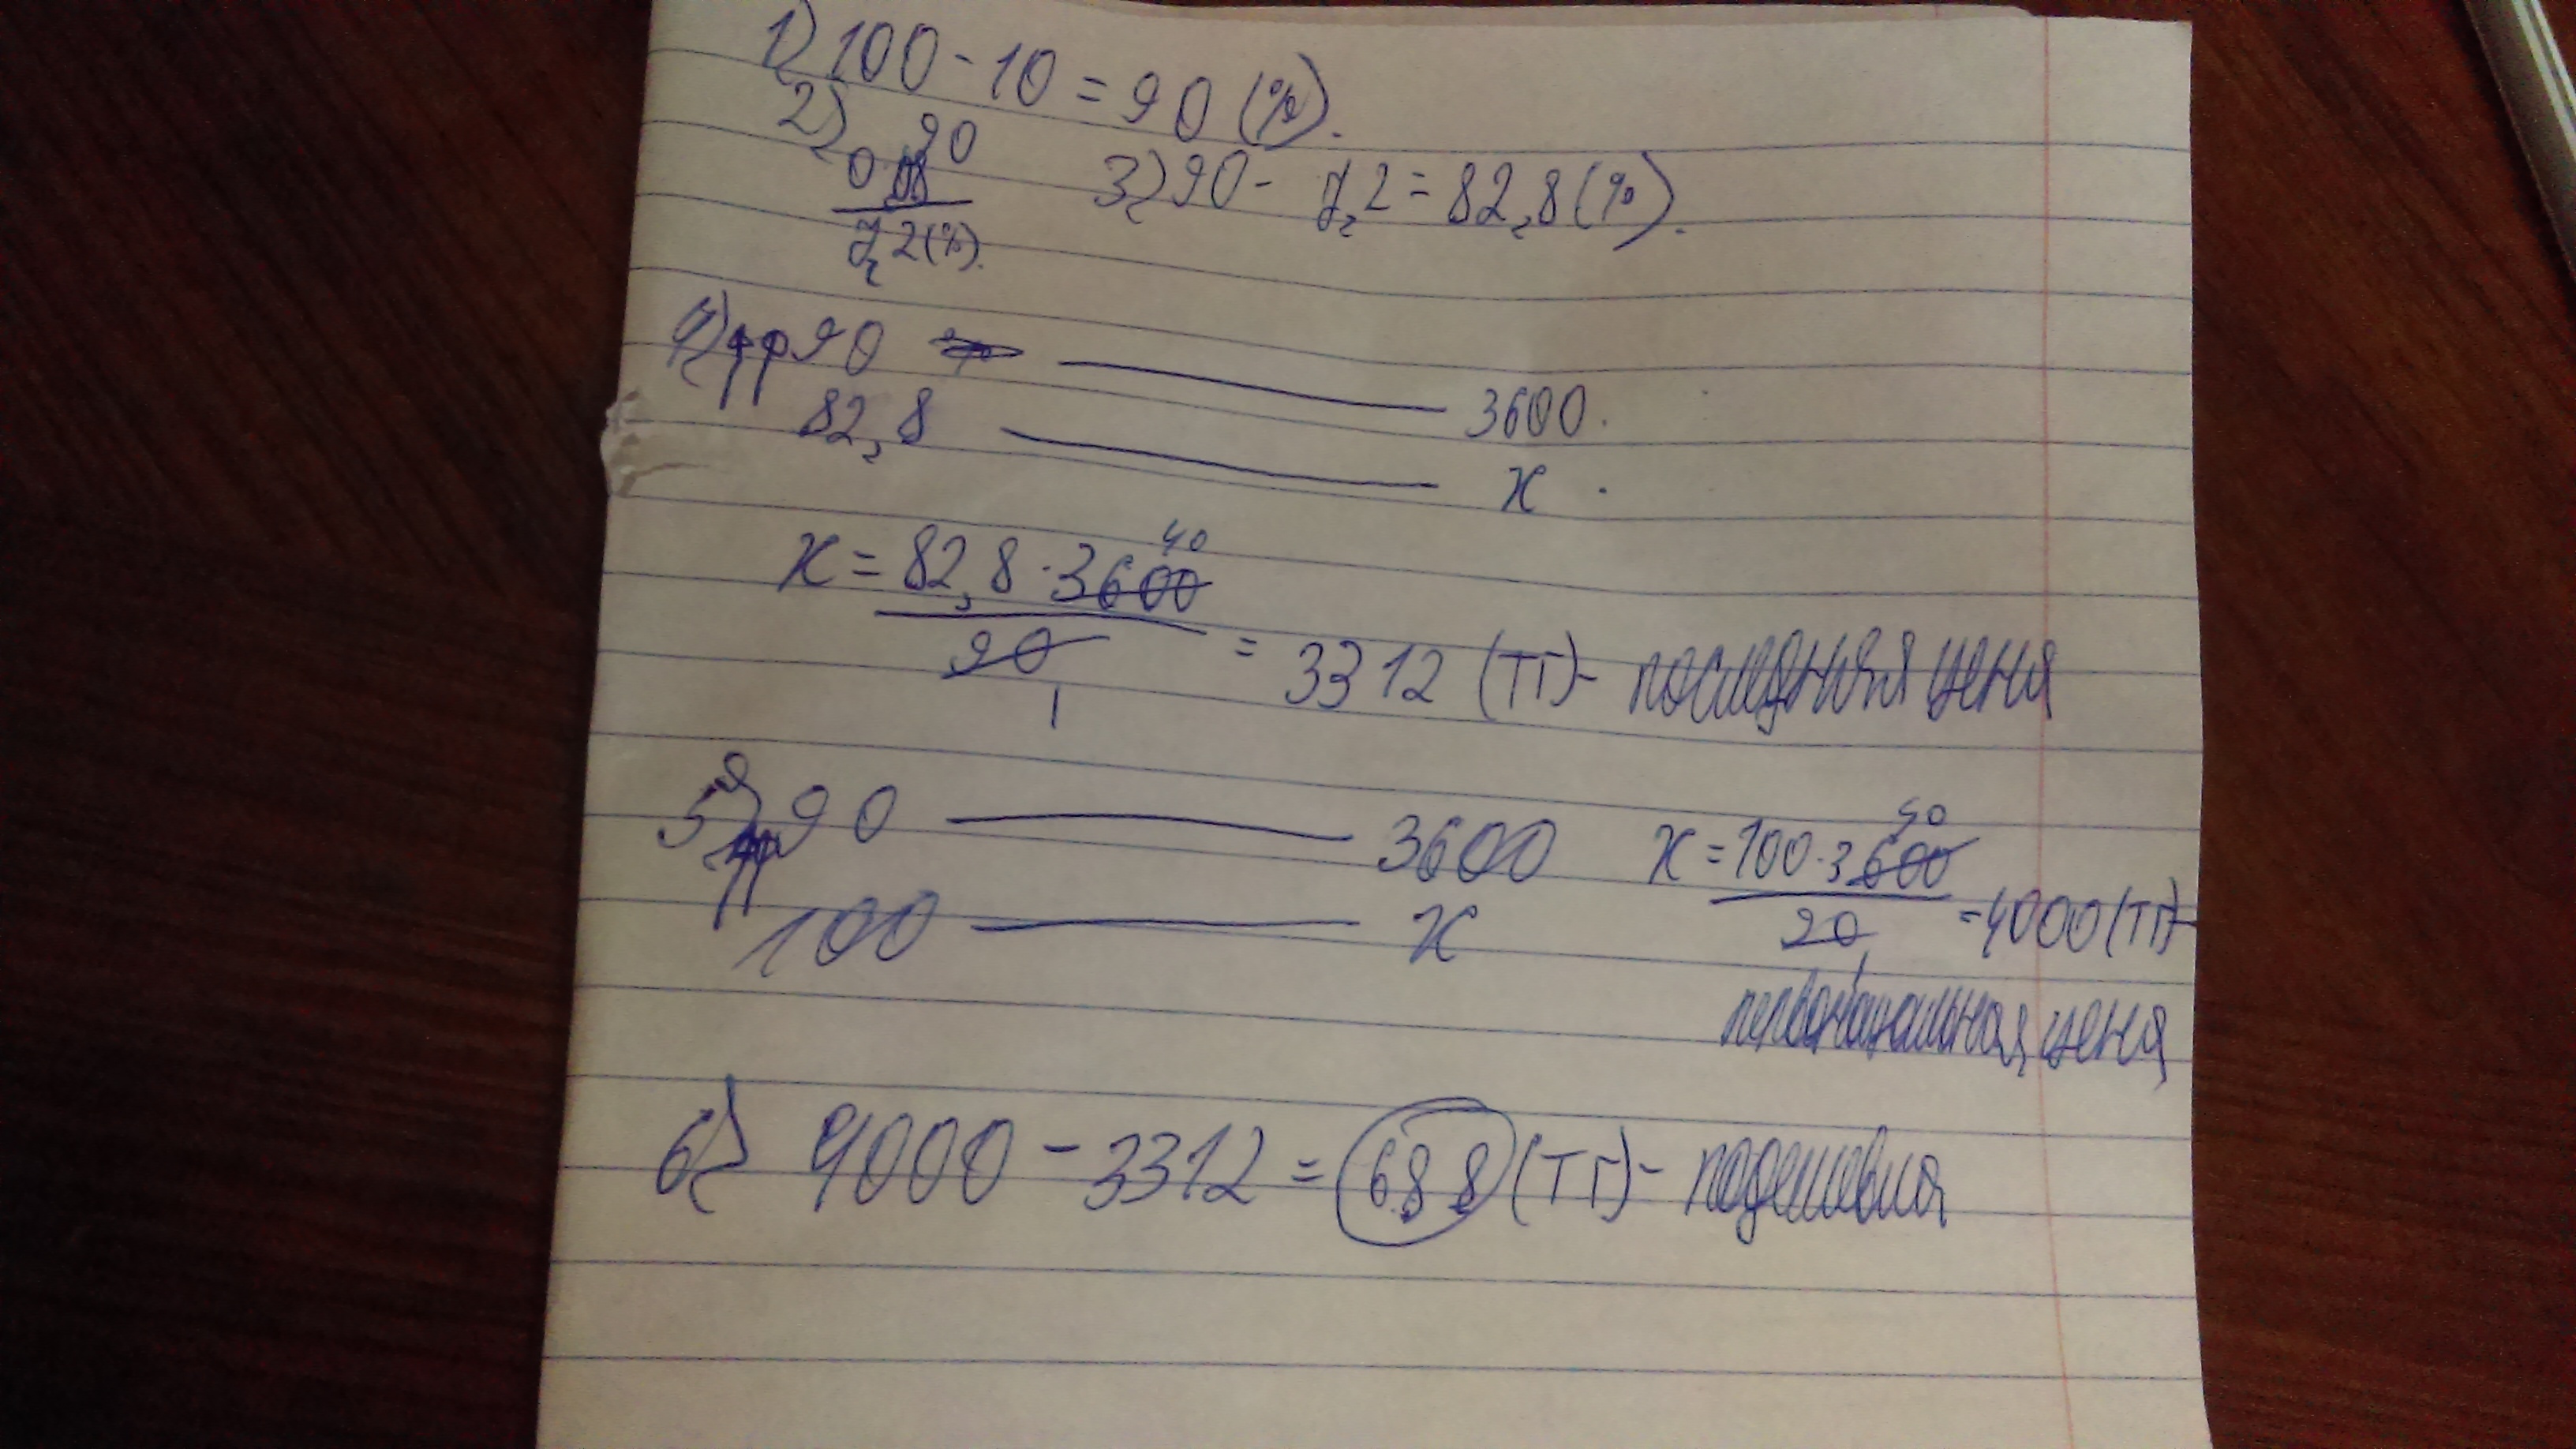 1) 100 - 10 = 90 (%).
2) 90
0,08
7,2 (%).
3) 90 - 7,2 = 82,8 (%).
4) 90 — 3600.
82,8 — x.
40
x = 82,8 · 3600
90
1
= 3312 (тг) - последняя цена
5) 90 — 3600
100 — x
40
x = 100 · 3600
90
1
= 4000 (тг) -
первоначальная цена
6) 4000 - 3312 = 688 (тг) - подешевел